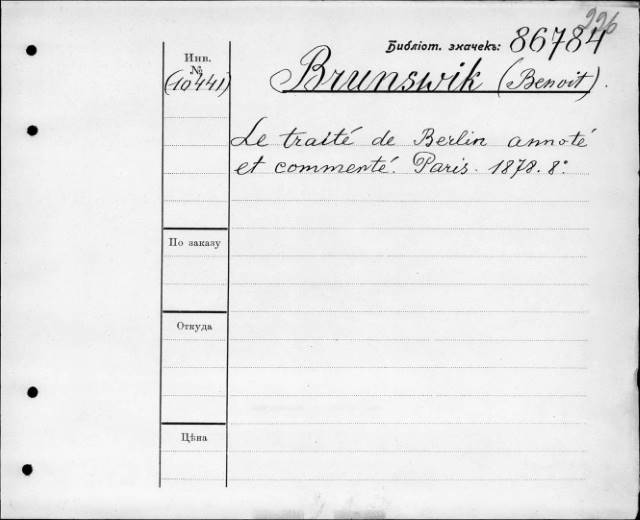 226
Библіот. значекъ: 86784
Инв.
№
(10441)
Brunswik (Benoit).
Le traité de Berlin annoté
et commenté. Paris. 1878. 8º
По заказу
Откуда
Цѣна